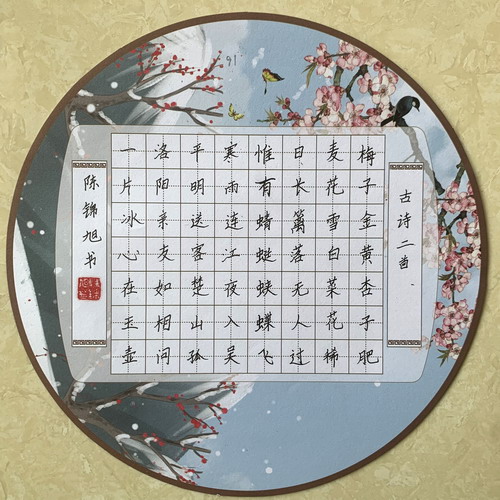 古诗二首
梅子金黄杏子肥
麦花雪白菜花稀
日长篱落无人过
惟有蜻蜓蛱蝶飞
寒雨连江夜入吴
平明送客楚山孤
洛阳亲友如相问
一片冰心在玉壶
陈锦旭书
91